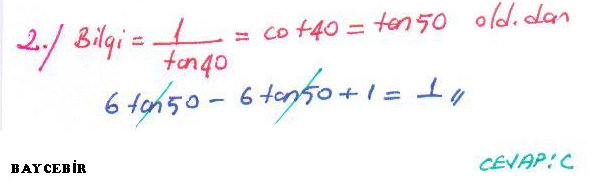 2./ Bilgi = 1/tan40 = cot40 = tan50 old.dan
6 tan50 - 6 tan50 + 1 = 1 //
CEVAP: C
BAYCEBİR